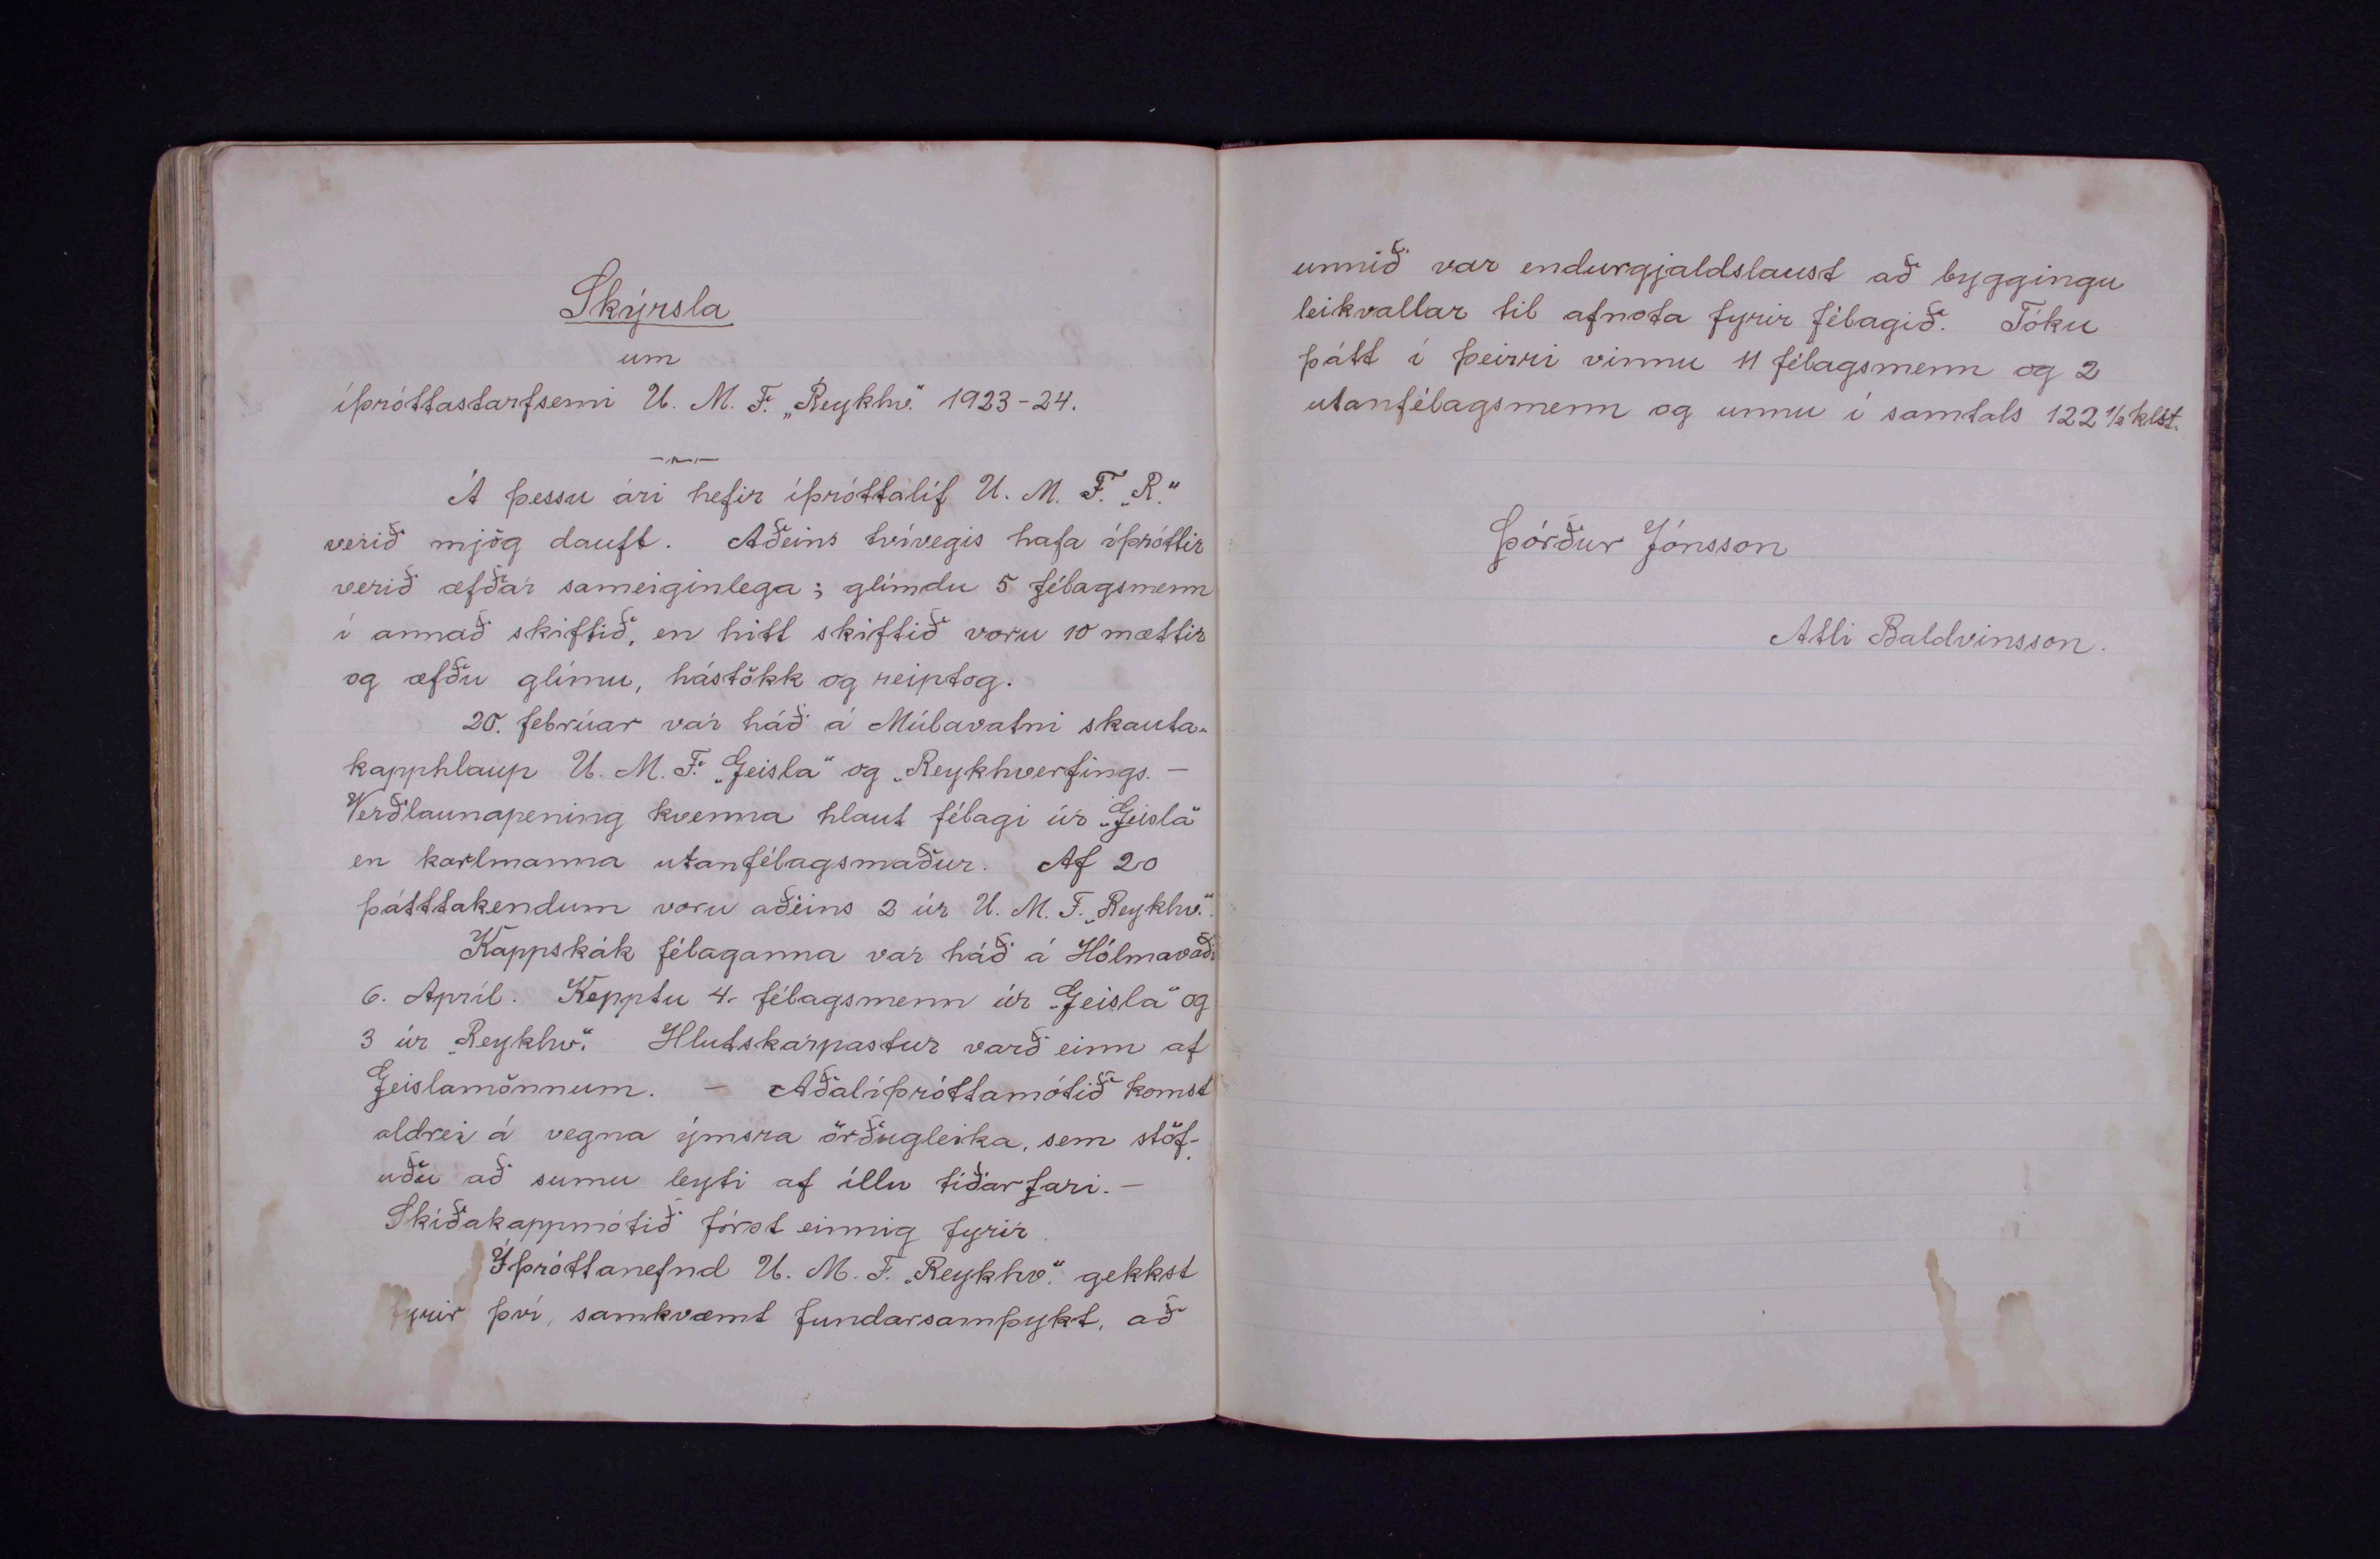 Skýrsla
um
íþróttastarfsemi U. M. F. „Reykhv." 1923-24.
Á þessu ári hefir íþróttalíf U. M. F. „R."
verið mjög dauft. Aðeins tvívegis hafa íþróttir
verið æfðar sameiginlega; glímdu 5 félagsmenn
í annað skiftið, en hitt skiftið voru 10 mættir
og æfðu glímu, hástökk og reiptog.
20. febrúar var háð á Múlavatni skauta-
kapphlaup U. M. F. „Geisla" og „Reykhverfings. -
Verðlaunapening kvenna hlaut félagi úr „Geisla"
en karlmanna utanfélagsmaður. Af 20
þátttakendum voru aðeins 2 úr U. M. F. „Reykhv."
Kappskák félaganna var háð á Hólmavaði
6. Apríl. Kepptu 4 félagsmenn úr „Geisla" og
3 úr „Reykhv." Hlutskarpastur varð einn af
Geislamönnum. - Aðalíþróttamótið komst
aldrei á vegna ýmsra örðugleika, sem stöf-
uðu að sumu leyti af illu tíðarfari. -
Skíðakappmótið fórst einnig fyrir.
Íþróttanefnd U. M. F. „Reykhv." gekkst
fyrir því, samkvæmt fundarsamþykt, að
unnið var endurgjaldslaust að byggingu
leikvallar til afnota fyrir félagið. Tóku
þátt í þeirri vinnu 11 félagsmenn og 2
utanfélagsmenn og unnu í samtals 122 1/2 klst.
Þórður Jónsson
Atli Baldvinsson.